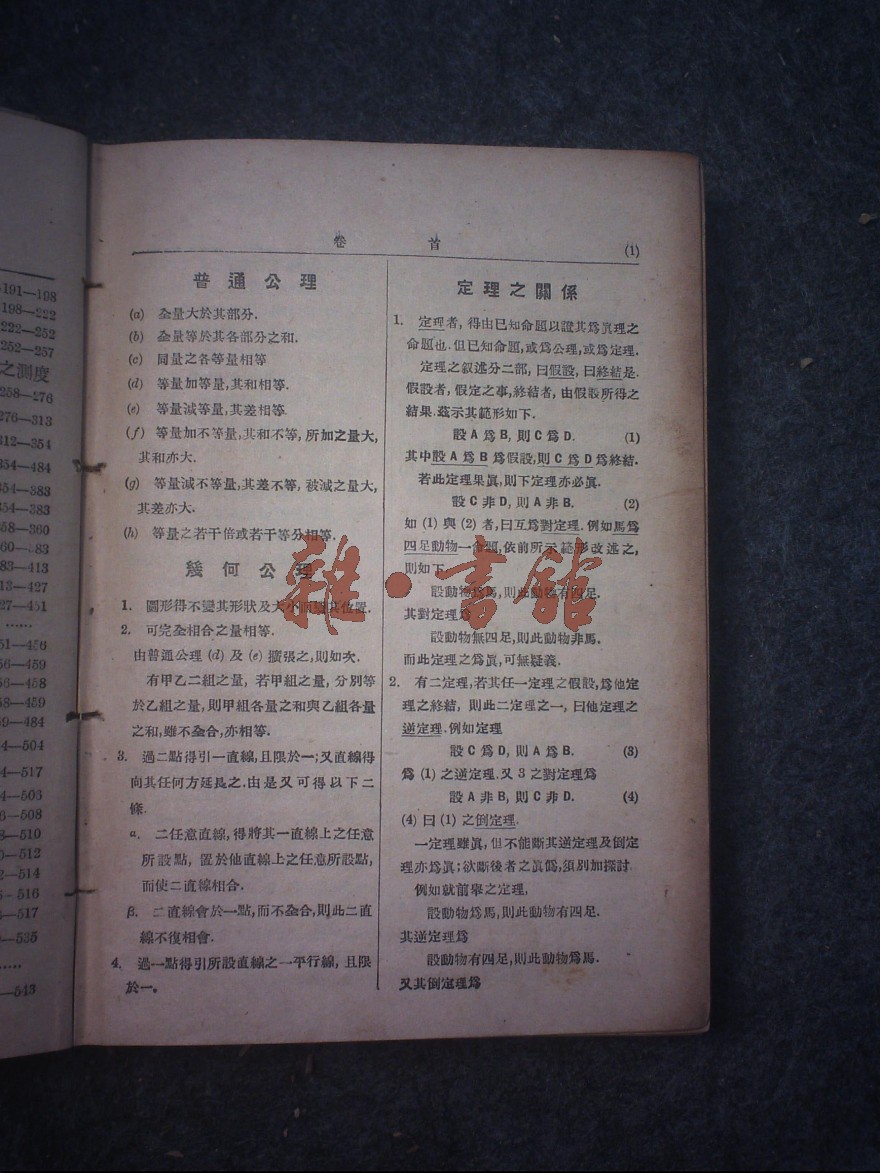 191—198
198—222
222—252
252—257
之測度
258—276
276—313
312—354
354—484
354—383
354—383
58—360
60—383
83—413
13—427
27—451
……
51—456
56—459
56—458
58—459
59—484
4—504
4—517
4—503
6—508
8—510
0—512
2—514
5—516
6—517
0—535
……
—543
卷首
(1)
普通公理
(a) 全量大於其部分.
(b) 全量等於其各部分之和.
(c) 同量之各等量相等
(d) 等量加等量,其和相等.
(e) 等量減等量,其差相等.
(f) 等量加不等量,其和不等,所加之量大,
其和亦大.
(g) 等量減不等量,其差不等,被減之量大,
其差亦大.
(h) 等量之若干倍或若干等分相等.
幾何公理
1. 圖形得不變其形狀及大小而變其位置.
2. 可完全相合之量相等.
由普通公理 (d) 及 (e) 擴張之,則如次.
有甲乙二組之量,若甲組之量,分別等
於乙組之量,則甲組各量之和與乙組各量
之和,雖不全合,亦相等.
3. 過二點得引一直線,且限於一;又直線得
向其任何方延長之.由是又可得以下二
條.
α. 二任意直線,得將其一直線上之任意
所設點,置於他直線上之任意所設點,
而使二直線相合.
β. 二直線會於一點,而不全合,則此二直
線不復相會.
4. 過一點得引所設直線之一平行線,且限
於一。
定理之關係
1. 定理者,得由已知命題以證其爲眞理之
命題也.但已知命題,或爲公理,或爲定理.
定理之叙述分二部,曰假設,曰終結是.
假設者,假定之事,終結者,由假設所得之
結果.玆示其範形如下.
設 A 爲 B, 則 C 爲 D. (1)
其中設 A 爲 B 爲假設,則 C 爲 D 爲終結.
若此定理果眞,則下定理亦必眞.
設 C 非 D, 則 A 非 B. (2)
如 (1) 與 (2) 者,曰互爲對定理.例如馬爲
四足動物一命題,依前所示範形改述之,
則如下
設動物爲馬,則此動物有四足.
其對定理爲
設動物無四足,則此動物非馬.
而此定理之爲眞,可無疑義.
2. 有二定理,若其任一定理之假設,爲他定
理之終結,則此二定理之一,曰他定理之
逆定理.例如定理
設 C 爲 D, 則 A 爲 B. (3)
爲 (1) 之逆定理.又 3 之對定理爲
設 A 非 B, 則 C 非 D. (4)
(4) 曰 (1) 之倒定理.
一定理雖眞,但不能斷其逆定理及倒定
理亦爲眞;欲斷後者之眞僞,須別加探討.
例如就前舉之定理,
設動物爲馬,則此動物有四足.
其逆定理爲
設動物有四足,則此動物爲馬.
又其倒定理爲
雜·書館